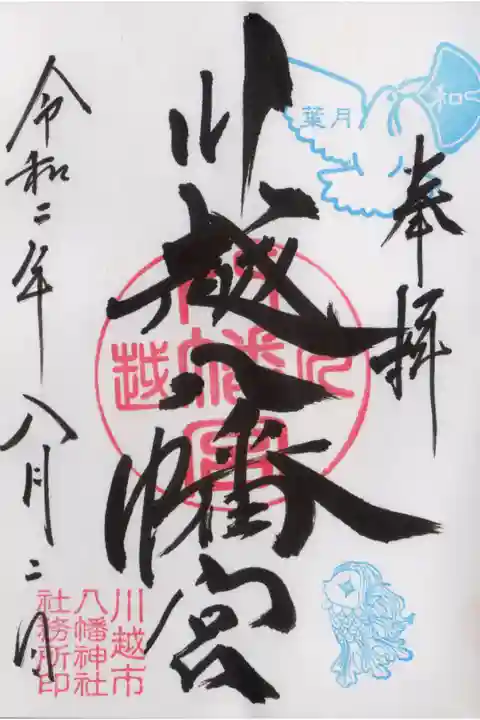 奉拝
葉月
和
川越八幡宮
令和二年八月二日
川越市
八幡神社
社務所印